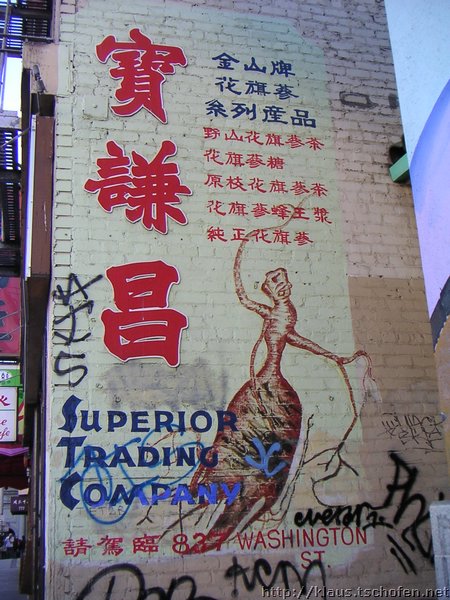 寶謙昌
金山牌
花旗蔘
系列產品
野山花旗蔘茶
花旗蔘糖
原枝花旗蔘茶
花旗蔘蜂王漿
純正花旗蔘
SUPERIOR
TRADING
COMPANY
請駕臨 837 WASHINGTON
ST.
http://klaus.tschofen.net